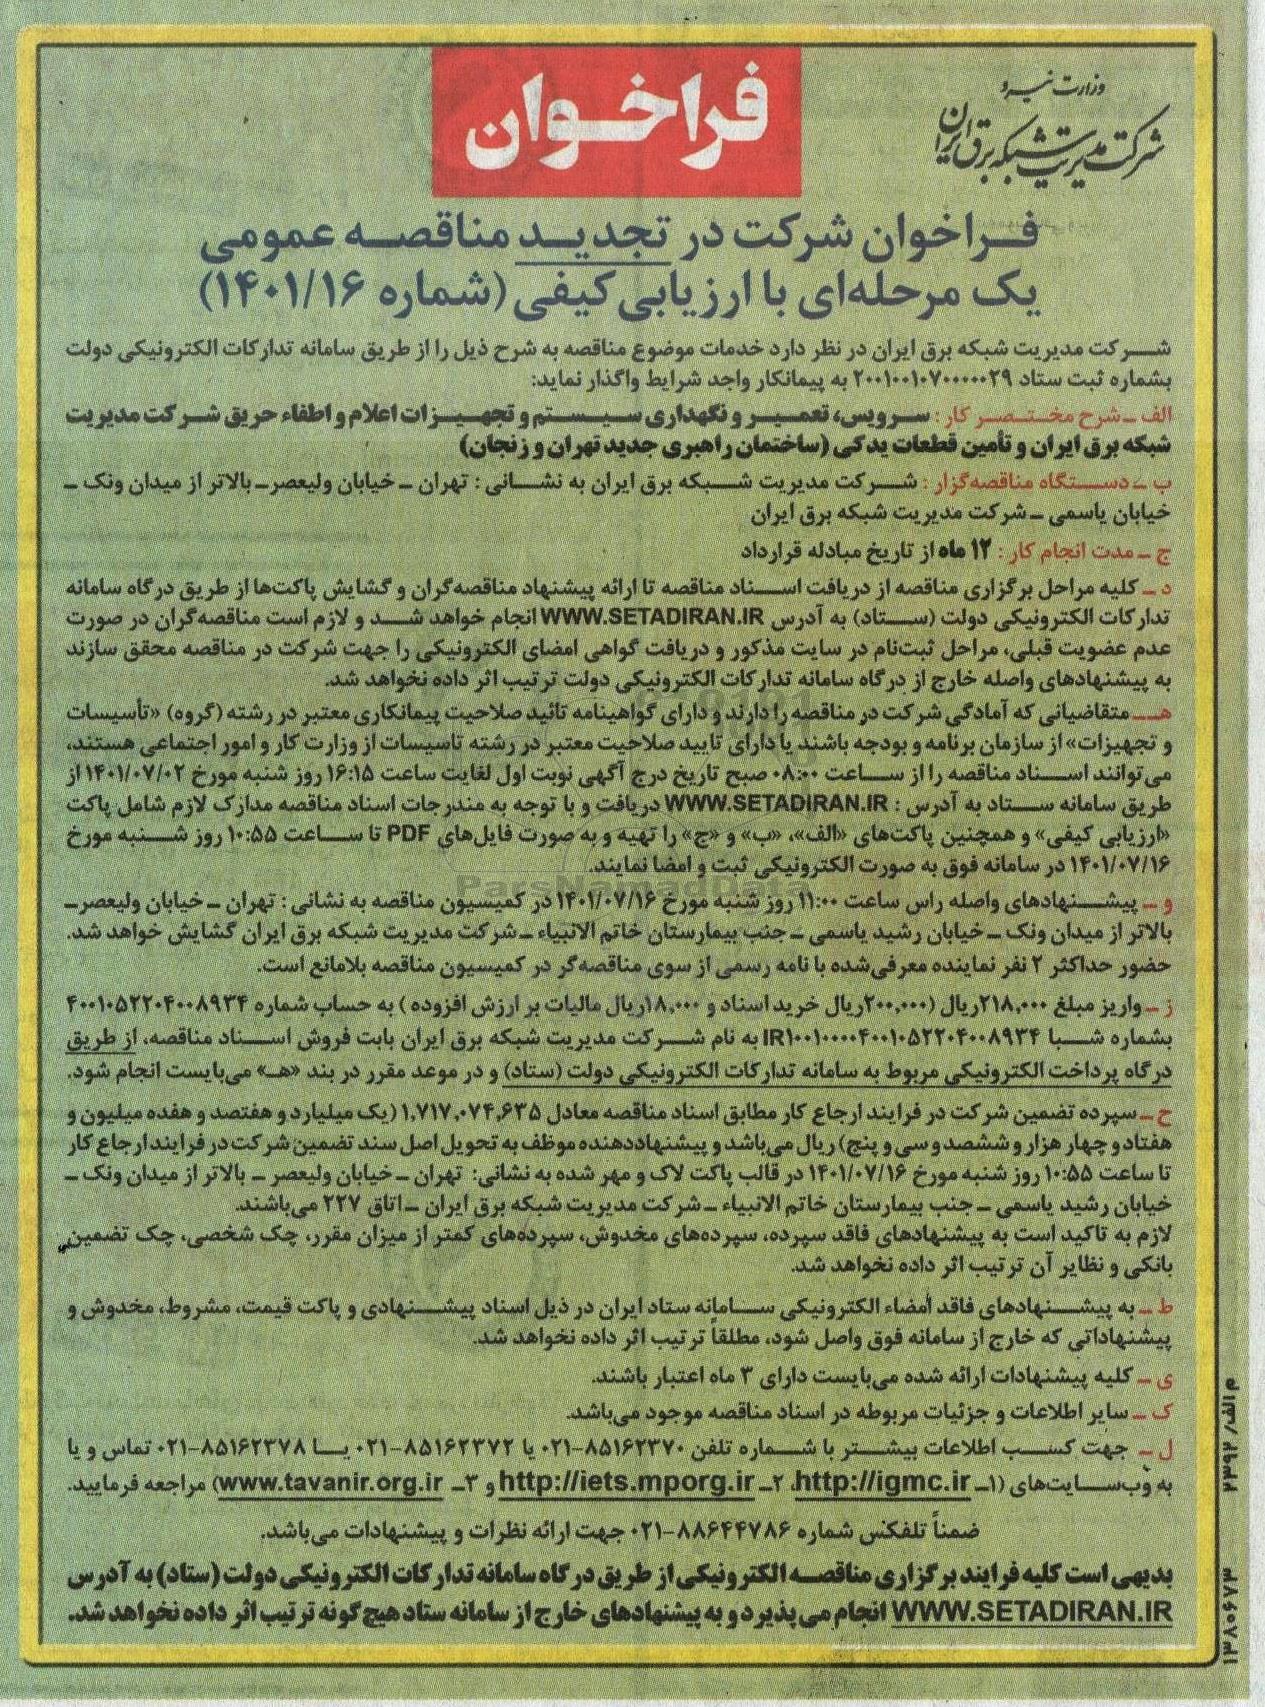 وزارت نیرو
شرکت مدیریت شبکه برق ایران
فراخوان
فراخوان شرکت در تجدید مناقصه عمومی
یک مرحله‌ای با ارزیابی کیفی (شماره ۱۴۰۱/۱۶)
شرکت مدیریت شبکه برق ایران در نظر دارد خدمات موضوع مناقصه به شرح ذیل را از طریق سامانه تدارکات الکترونیکی دولت
بشماره ثبت ستاد ۲۰۰۱۰۰۱۰۷۰۰۰۰۰۲۹ به پیمانکار واجد شرایط واگذار نماید:
الف ـ شرح مختصر کار: سرویس، تعمیر و نگهداری سیستم و تجهیزات اعلام و اطفاء حریق شرکت مدیریت
شبکه برق ایران و تأمین قطعات یدکی (ساختمان راهبری جدید تهران و زنجان)
ب ـ دستگاه مناقصه‌گزار: شرکت مدیریت شبکه برق ایران به نشانی: تهران ـ خیابان ولیعصر ـ بالاتر از میدان ونک ـ
خیابان یاسمی ـ شرکت مدیریت شبکه برق ایران
ج ـ مدت انجام کار: ۱۲ ماه از تاریخ مبادله قرارداد
د ـ کلیه مراحل برگزاری مناقصه از دریافت اسناد مناقصه تا ارائه پیشنهاد مناقصه‌گران و گشایش پاکت‌ها از طریق درگاه سامانه
تدارکات الکترونیکی دولت (ستاد) به آدرس WWW.SETADIRAN.IR انجام خواهد شد و لازم است مناقصه‌گران در صورت
عدم عضویت قبلی، مراحل ثبت‌نام در سایت مذکور و دریافت گواهی امضای الکترونیکی را جهت شرکت در مناقصه محقق سازند
به پیشنهادهای واصله خارج از درگاه سامانه تدارکات الکترونیکی دولت ترتیب اثر داده نخواهد شد.
هـ ـ متقاضیانی که آمادگی شرکت در مناقصه را دارند و دارای گواهینامه تائید صلاحیت پیمانکاری معتبر در رشته (گروه) «تأسیسات
و تجهیزات» از سازمان برنامه و بودجه باشند یا دارای تایید صلاحیت معتبر در رشته تاسیسات از وزارت کار و امور اجتماعی هستند،
می‌توانند اسناد مناقصه را از ساعت ۰۸:۰۰ صبح تاریخ درج آگهی نوبت اول لغایت ساعت ۱۶:۱۵ روز شنبه مورخ ۱۴۰۱/۰۷/۰۲ از
طریق سامانه ستاد به آدرس: WWW.SETADIRAN.IR دریافت و با توجه به مندرجات اسناد مناقصه مدارک لازم شامل پاکت
«ارزیابی کیفی» و همچنین پاکت‌های «الف»، «ب» و «ج» را تهیه و به صورت فایل‌های PDF تا ساعت ۱۰:۵۵ روز شنبه مورخ
۱۴۰۱/۰۷/۱۶ در سامانه فوق به صورت الکترونیکی ثبت و امضا نمایند.
ParsNamadData
و ـ پیشنهادهای واصله راس ساعت ۱۱:۰۰ روز شنبه مورخ ۱۴۰۱/۰۷/۱۶ در کمیسیون مناقصه به نشانی: تهران ـ خیابان ولیعصر ـ
بالاتر از میدان ونک ـ خیابان رشید یاسمی ـ جنب بیمارستان خاتم الانبیاء ـ شرکت مدیریت شبکه برق ایران گشایش خواهد شد.
حضور حداکثر ۲ نفر نماینده معرفی‌شده با نامه رسمی از سوی مناقصه‌گر در کمیسیون مناقصه بلامانع است.
ز ـ واریز مبلغ ۲۱۸,۰۰۰ریال (۲۰۰,۰۰۰ریال خرید اسناد و ۱۸,۰۰۰ریال مالیات بر ارزش افزوده) به حساب شماره ۴۰۰۱۰۵۲۲۰۴۰۰۸۹۳۴
بشماره شبا IR۱۰۰۱۰۰۰۰۴۰۰۱۰۵۲۲۰۴۰۰۸۹۳۴ به نام شرکت مدیریت شبکه برق ایران بابت فروش اسناد مناقصه، از طریق
درگاه پرداخت الکترونیکی مربوط به سامانه تدارکات الکترونیکی دولت (ستاد) و در موعد مقرر در بند «هـ» می‌بایست انجام شود.
ح ـ سپرده تضمین شرکت در فرایند ارجاع کار مطابق اسناد مناقصه معادل ۱,۷۱۷,۰۷۴,۶۳۵ (یک میلیارد و هفتصد و هفده میلیون و
هفتاد و چهار هزار و ششصد و سی و پنج) ریال می‌باشد و پیشنهاددهنده موظف به تحویل اصل سند تضمین شرکت در فرایند ارجاع کار
تا ساعت ۱۰:۵۵ روز شنبه مورخ ۱۴۰۱/۰۷/۱۶ در قالب پاکت لاک و مهر شده به نشانی: تهران ـ خیابان ولیعصر ـ بالاتر از میدان ونک ـ
خیابان رشید یاسمی ـ جنب بیمارستان خاتم الانبیاء ـ شرکت مدیریت شبکه برق ایران ـ اتاق ۲۲۷ می‌باشند.
لازم به تاکید است به پیشنهادهای فاقد سپرده، سپرده‌های مخدوش، سپرده‌های کمتر از میزان مقرر، چک شخصی، چک تضمین
بانکی و نظایر آن ترتیب اثر داده نخواهد شد.
ط ـ به پیشنهادهای فاقد امضاء الکترونیکی سامانه ستاد ایران در ذیل اسناد پیشنهادی و پاکت قیمت، مشروط، مخدوش و
پیشنهاداتی که خارج از سامانه فوق واصل شود، مطلقاً ترتیب اثر داده نخواهد شد.
ی ـ کلیه پیشنهادات ارائه شده می‌بایست دارای ۳ ماه اعتبار باشند.
ک ـ سایر اطلاعات و جزئیات مربوطه در اسناد مناقصه موجود می‌باشد.
ل ـ جهت کسب اطلاعات بیشتر با شماره تلفن ۸۵۱۶۲۳۷۰-۰۲۱ یا ۸۵۱۶۲۳۷۲-۰۲۱ یا ۸۵۱۶۲۳۷۸-۰۲۱ تماس و یا
به وب‌سایت‌های (۱ـ http://igmc.ir، ۲ـ http://iets.mporg.ir و ۳ـ www.tavanir.org.ir) مراجعه فرمایید.
ضمناً تلفکس شماره ۸۸۶۴۴۷۸۶-۰۲۱ جهت ارائه نظرات و پیشنهادات می‌باشد.
بدیهی است کلیه فرایند برگزاری مناقصه الکترونیکی از طریق درگاه سامانه تدارکات الکترونیکی دولت (ستاد) به آدرس
WWW.SETADIRAN.IR انجام می‌پذیرد و به پیشنهادهای خارج از سامانه ستاد هیچ گونه ترتیب اثر داده نخواهد شد.
م الف/ ۲۳۹۲
۱۳۸۰۶۷۳